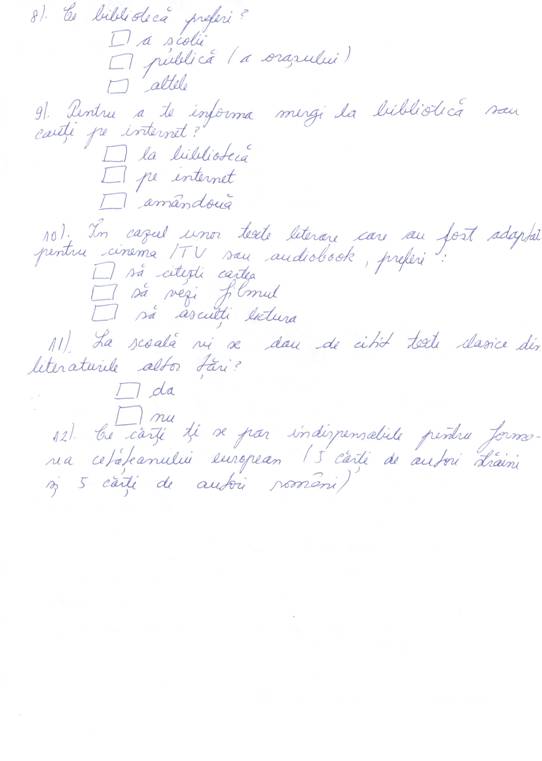 8). Ce bibliotecă preferi?
☐ a școlii
☐ publică (a orașului)
☐ altele
9). Pentru a te informa mergi la bibliotecă sau
cauți pe internet?
☐ la bibliotecă
☐ pe internet
☐ amândouă
10). În cazul unor texte literare care au fost adaptat
pentru cinema/TV sau audiobook, preferi:
☐ să citești cartea
☐ să vezi filmul
☐ să asculți lectura
11). La școală vi se dau de citit texte clasice din
literaturile altor țări?
☐ da
☐ nu
12). Ce cărți ți se par indispensabile pentru forma-
rea cetățeanului european (5 cărți de autori străini
și 5 cărți de autori români)